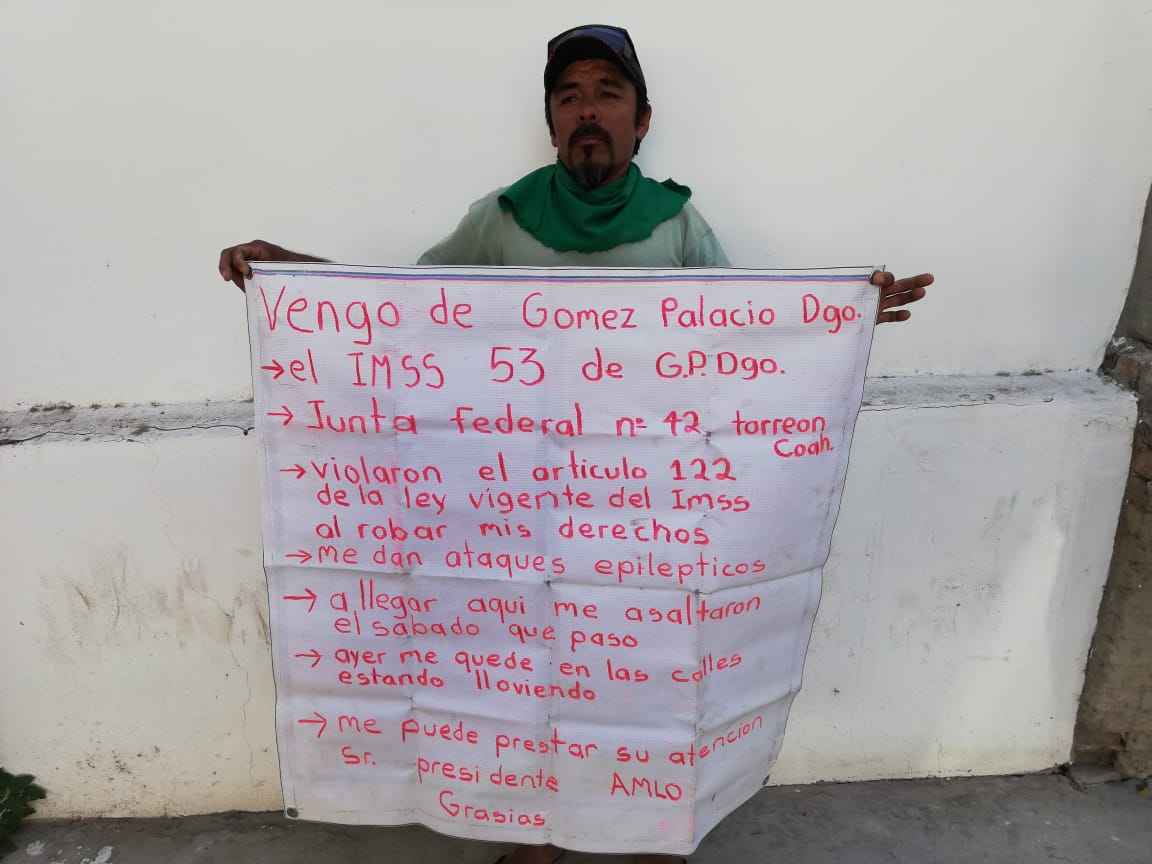 Vengo de Gomez Palacio Dgo.
→el IMSS 53 de G.P. Dgo.
→Junta federal n= 42, torreon
Coah.
→violaron el articulo 122
de la ley vigente del Imss
al robar mis derechos
→me dan ataques epilepticos
→a llegar aqui me asaltaron
el sabado que paso
→ayer me quede en las calles
estando lloviendo
→me puede prestar su atencion
Sr. presidente AMLO
Grasias